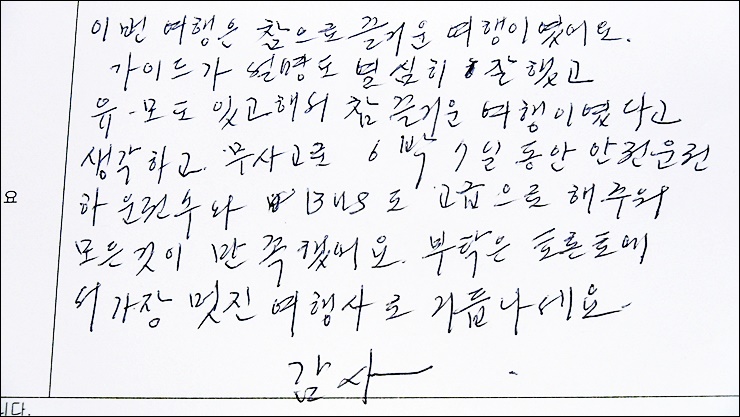 이번 여행은 참으로 즐거운 여행이였어요.
가이드가 설명도 열심히 잘했고
유·모도 있고해서 참 즐거운 여행이였다고
생각하고. 무사고로 6박 7일 동안 안전운전
하 운전수와 BUS도 고급으로 해주어
모든것이 만족했어요. 부탁은 토론토에
서 가장 멋진 여행사로 거듭나세요.
감사
요
니다.